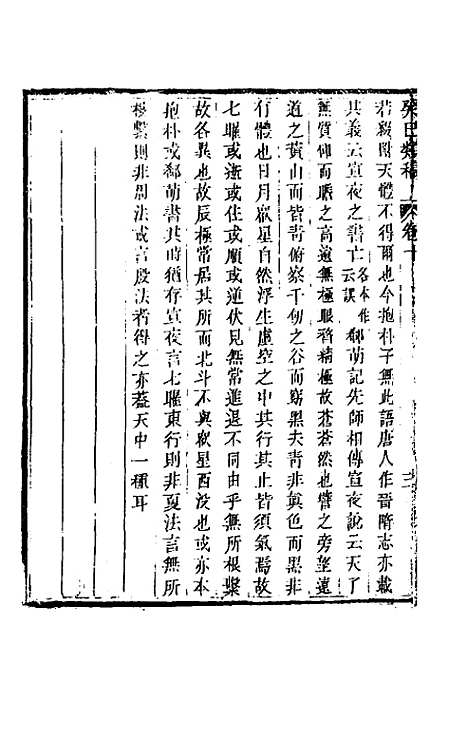 癸巳類稿 卷十
若綴附天體不得爾也今抱朴子無此語唐人作晉隋志亦載
其義云宣夜之書亡各本作云誤郗萌記先師相傳宣夜說云天了
無質仰而瞻之高遠無極眼瞀精極故蒼蒼然也譬之旁望遠
道之黃山而皆青俯察千仞之谷而窈黑夫青非眞色而黑非
有體也日月衆星自然浮生虛空之中其行其止皆須氣焉故
七曜或逝或住或順或逆伏見無常進退不同由乎無所根繫
故各異也故辰極常居其所而北斗不與衆星西沒也或亦本
抱朴或郗萌書其時猶存宣夜言七曜東行則非夏法言無所
根繫則非周法或言殷法者得之亦蓋天中一種耳